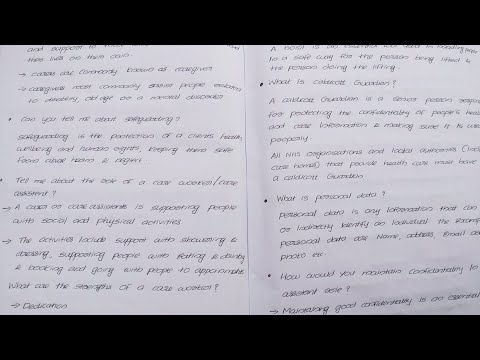 and support to
their lives on their own
→ carers are commonly known as caregiver
→ caregivers most commonly assist people
to disability, old age or a mental disorder
• Can you tell me about safeguarding?
safeguarding is the protection of a clients health,
wellbeing and human rights, keeping them safe
from abuse harm & neglect
• Tell me about the role of a care worker/care
assistent?
→ A carer or care assistants is supporting people
with social and physical activities
→ The activities include support with showering &
dressing, supporting people with &
& and going with people to
What are the strengths of a care worker?
→ Dedication
A hoist is an
to a safe way for the person being lifted &
the person doing the lifting.
• What is caldicott Guardian?
A caldicott Guardian is a senior person
for protecting the confidentiality of people's
and care information & making sure it is
properly.
All NHS organisations and local
care homes) that provide health care must have
a caldicott Guardian
• What is personal data?
personal data is any information that can
or indirectly identify an individual the
personal data are Name, address, Email
photo etc
• How would you maintain confidentiality
assistent role?
→ Maintaining good confidentiality is an